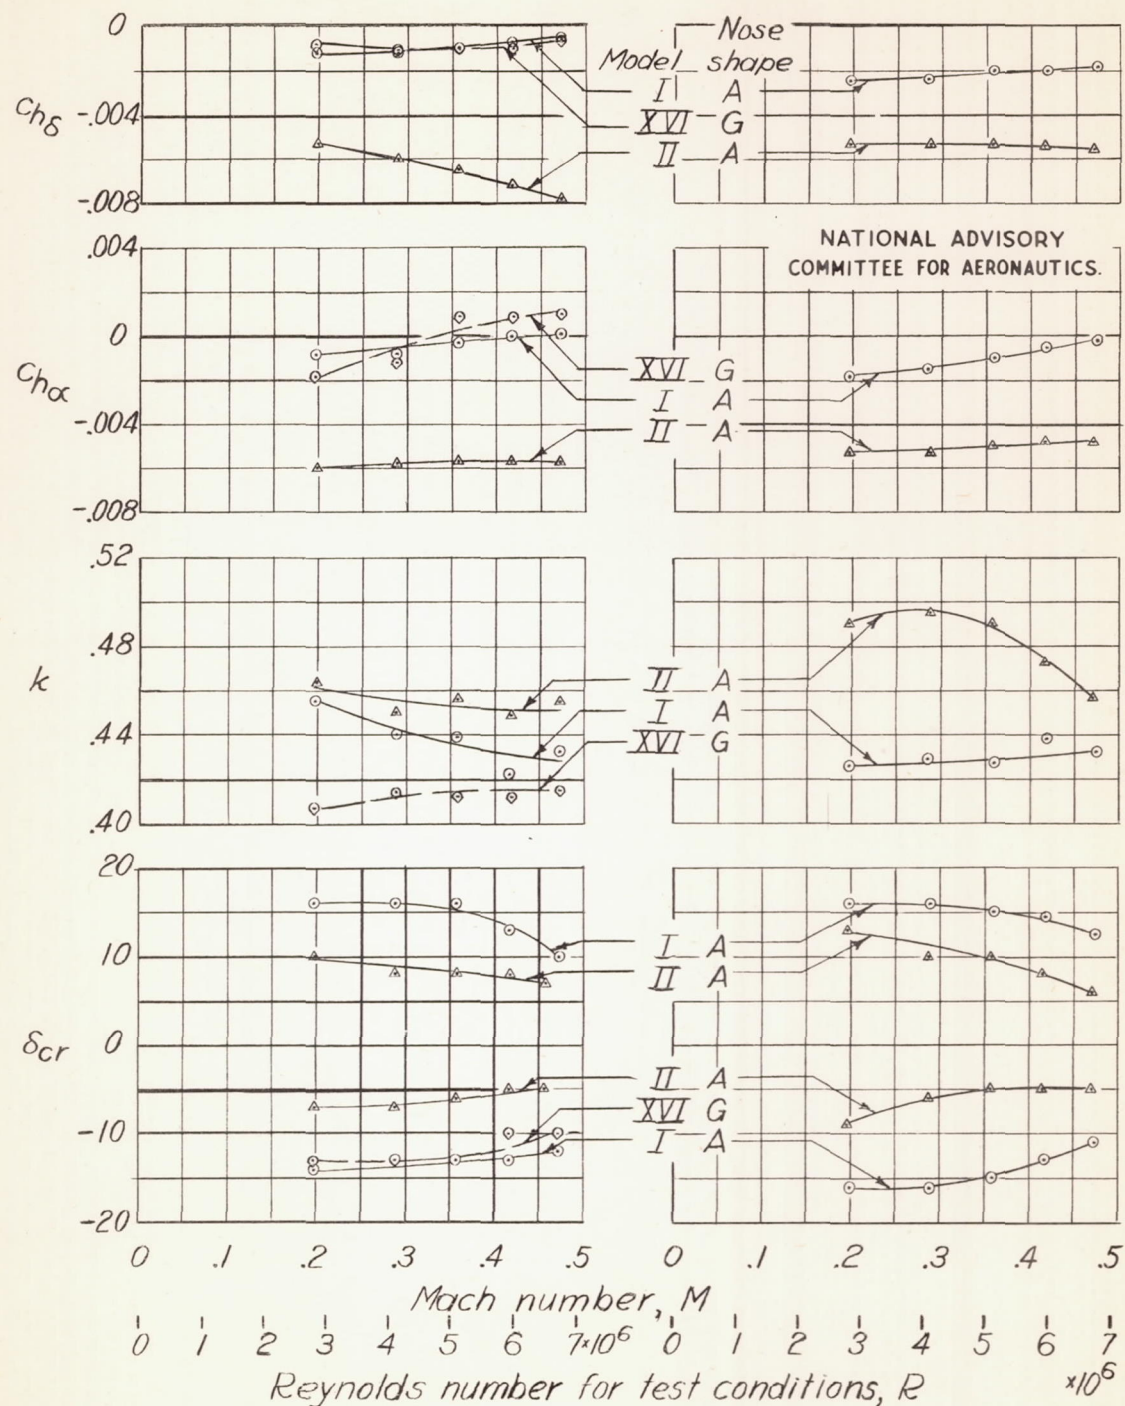 0
-.004
-.008
chδ
Nose
Model shape
I A
XVI G
II A
NATIONAL ADVISORY
COMMITTEE FOR AERONAUTICS.
.004
0
-.004
-.008
chα
XVI G
I A
II A
.52
.48
.44
.40
k
II A
I A
XVI G
20
10
0
-10
-20
δcr
I A
II A
II A
XVI G
I A
0 .1 .2 .3 .4 .5 0 .1 .2 .3 .4 .5
Mach number, M
0 1 2 3 4 5 6 7×10⁶ 0 1 2 3 4 5 6 7
×10⁶
Reynolds number for test conditions, R